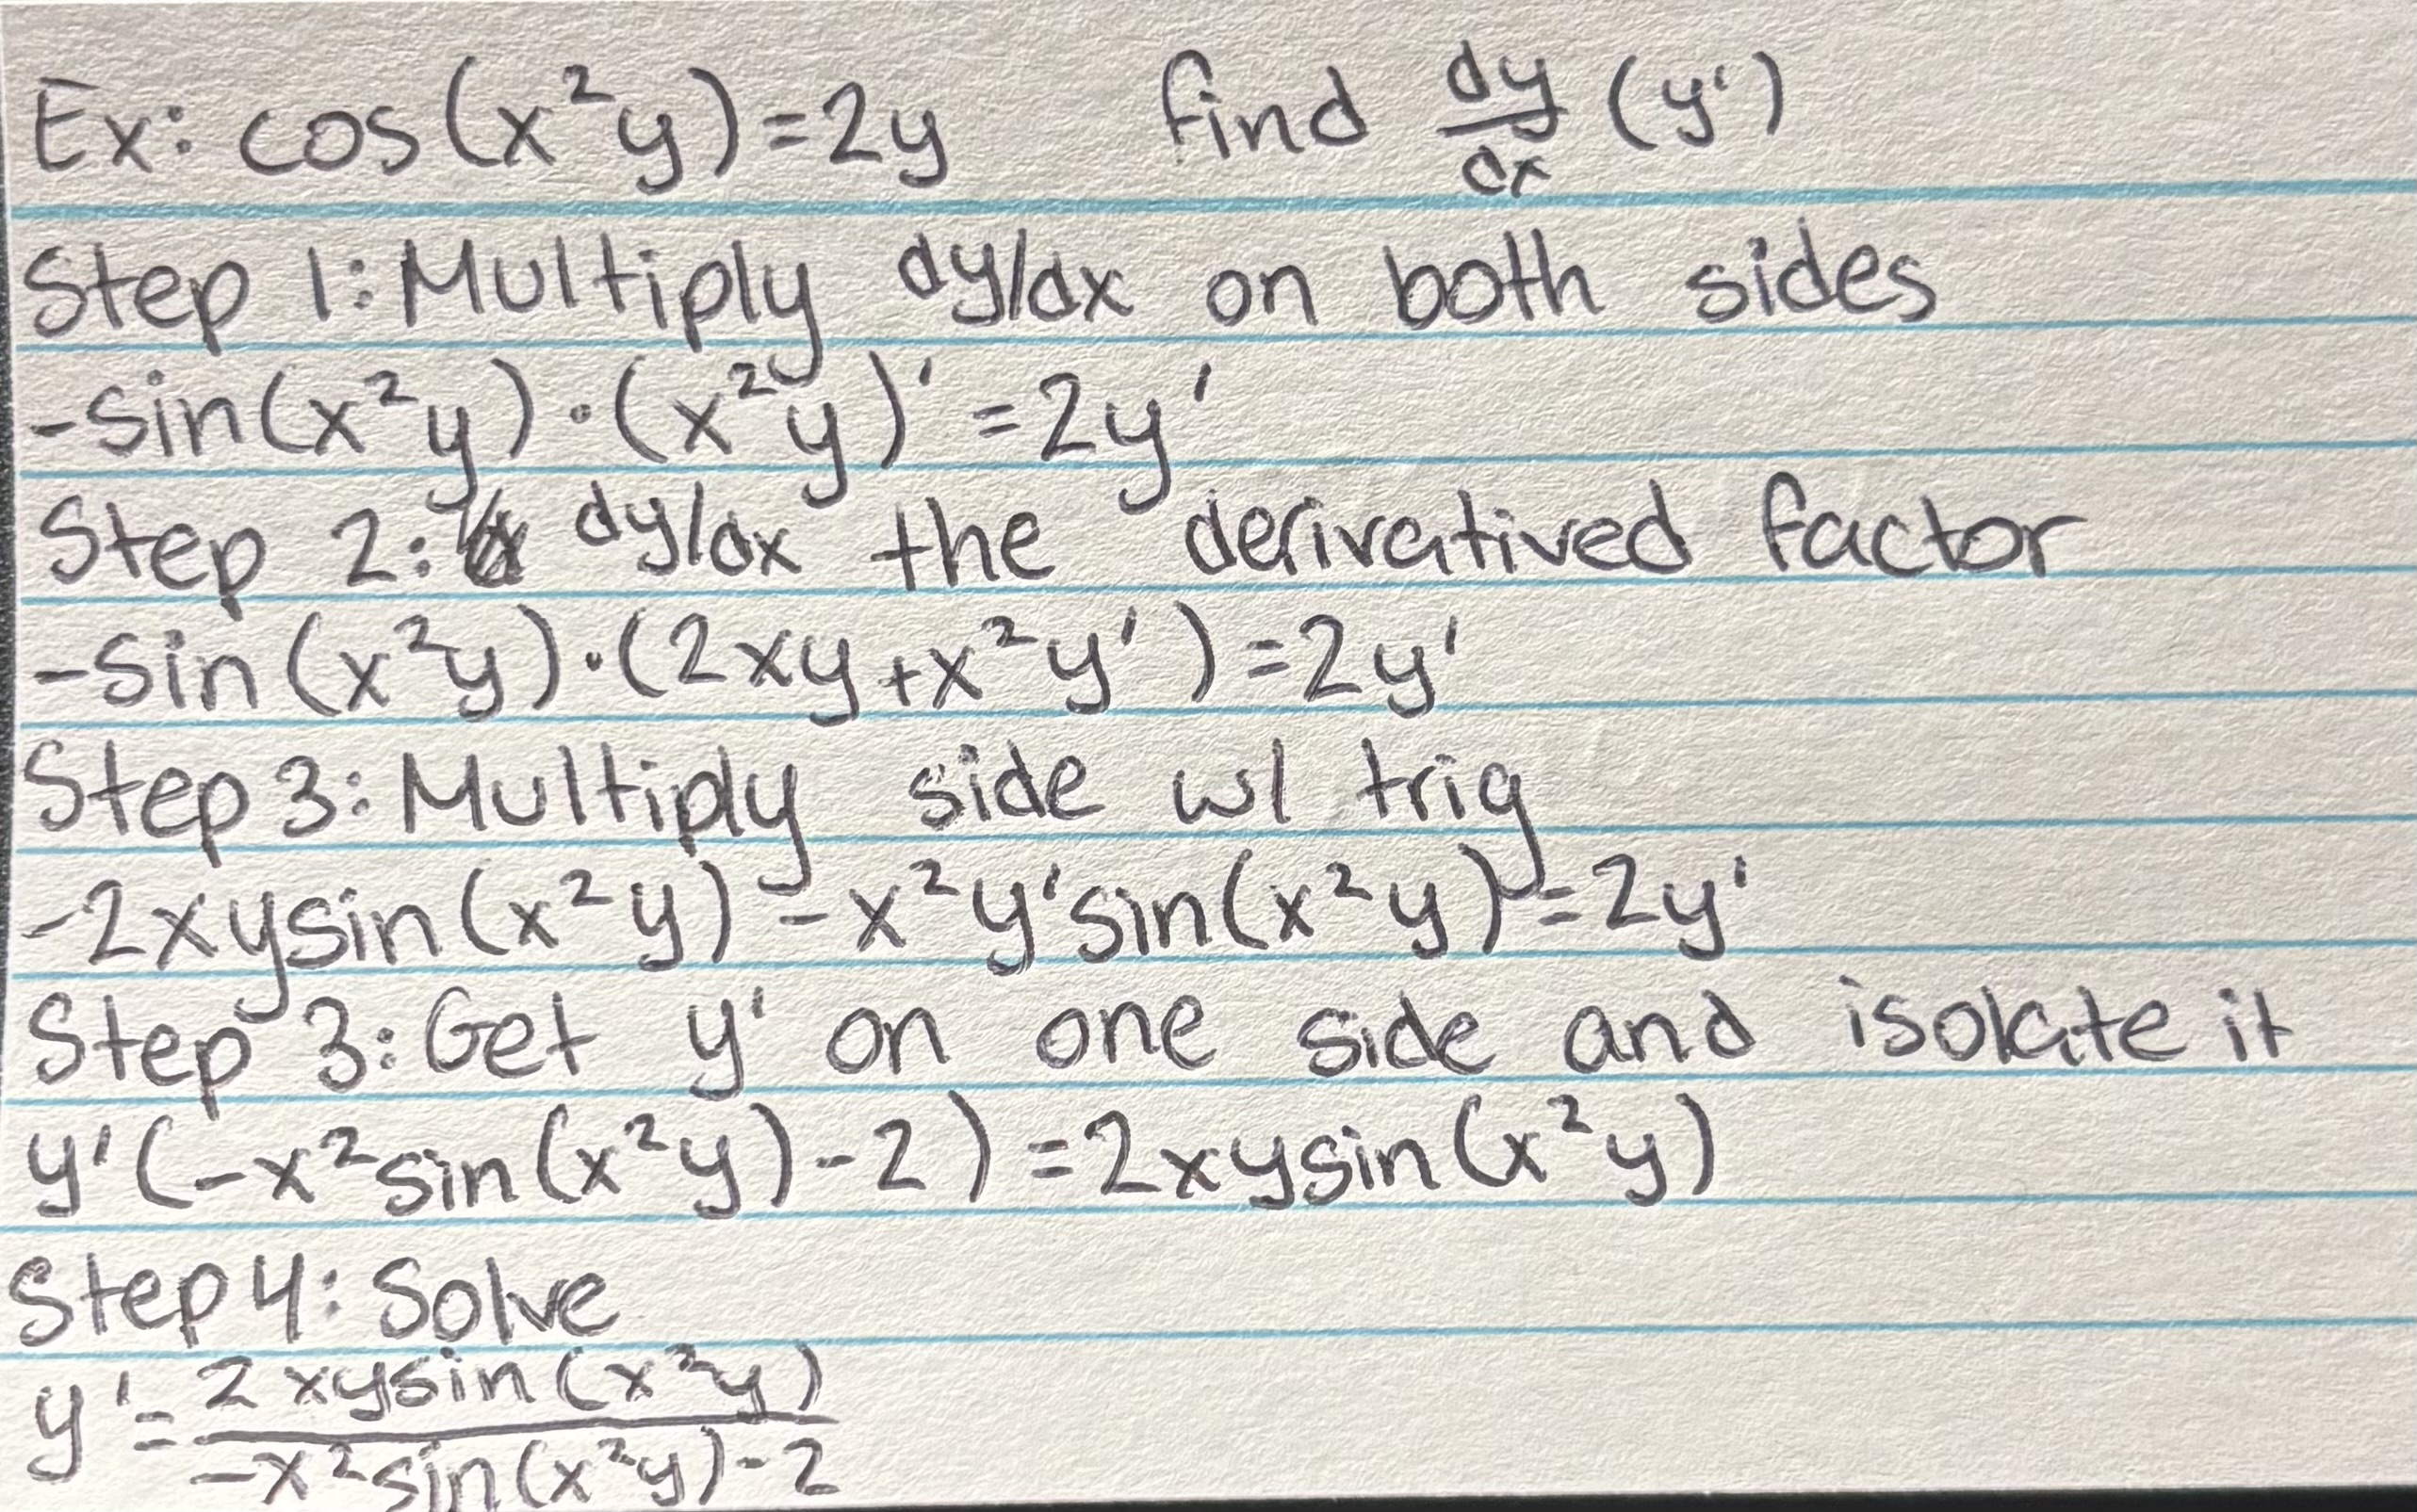 Ex: cos(x²y)=2y find dy/dx (y')
Step 1: Multiply dy/dx on both sides
-sin(x²y)·(x²y)'=2y'
Step 2: dy/dx the derivatived factor
-sin(x²y)·(2xy+x²y')=2y'
Step 3: Multiply side w/ trig
-2xysin(x²y)-x²y'sin(x²y)=2y'
Step 3: Get y' on one side and isolate it
y'(-x²sin(x²y)-2)=2xysin(x²y)
Step 4: Solve
y'=2xysin(x²y)/-x²sin(x²y)-2